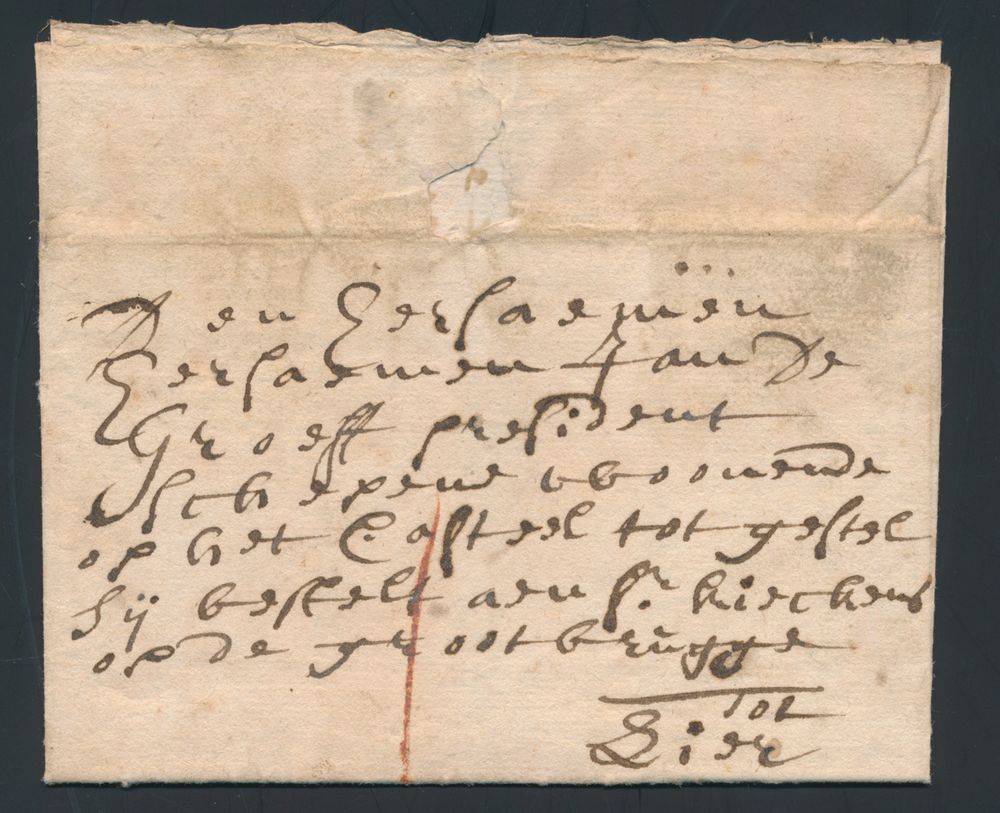 Den Eersaemen
Eersaemen Jan De
Groeff president
Schepene vvoonende
op het Casteel tot gestel
Sij bestelt aen Sr kieckens
op de groot brugge
Tot
Lier